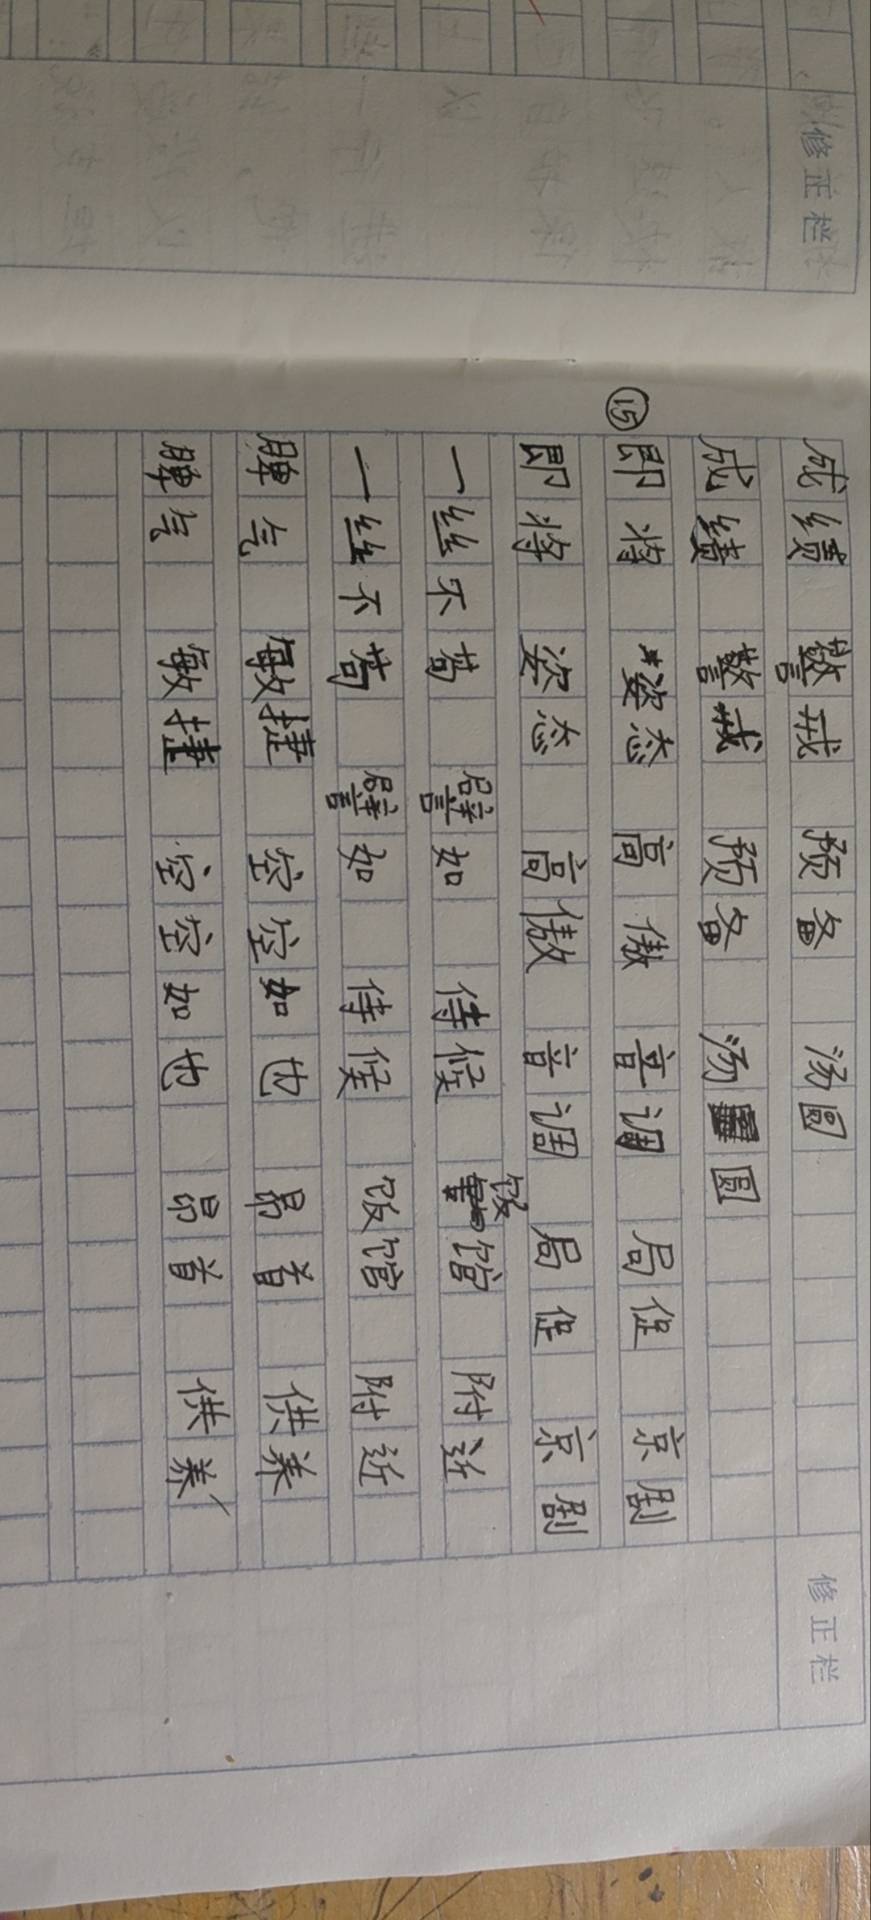 修正栏
成绩 警戒 预备 汤圆
成绩 警戒 预备 汤圆
⑮ 即将 姿态 高傲 音调 局促 京剧
即将 姿态 高傲 音调 局促 京剧
一丝不苟 譬如 侍候 饭馆 附近
一丝不苟 譬如 侍候 饭馆 附近
脾气 敏捷 空空如也 昂首 供养
脾气 敏捷 空空如也 昂首 供养
修正栏